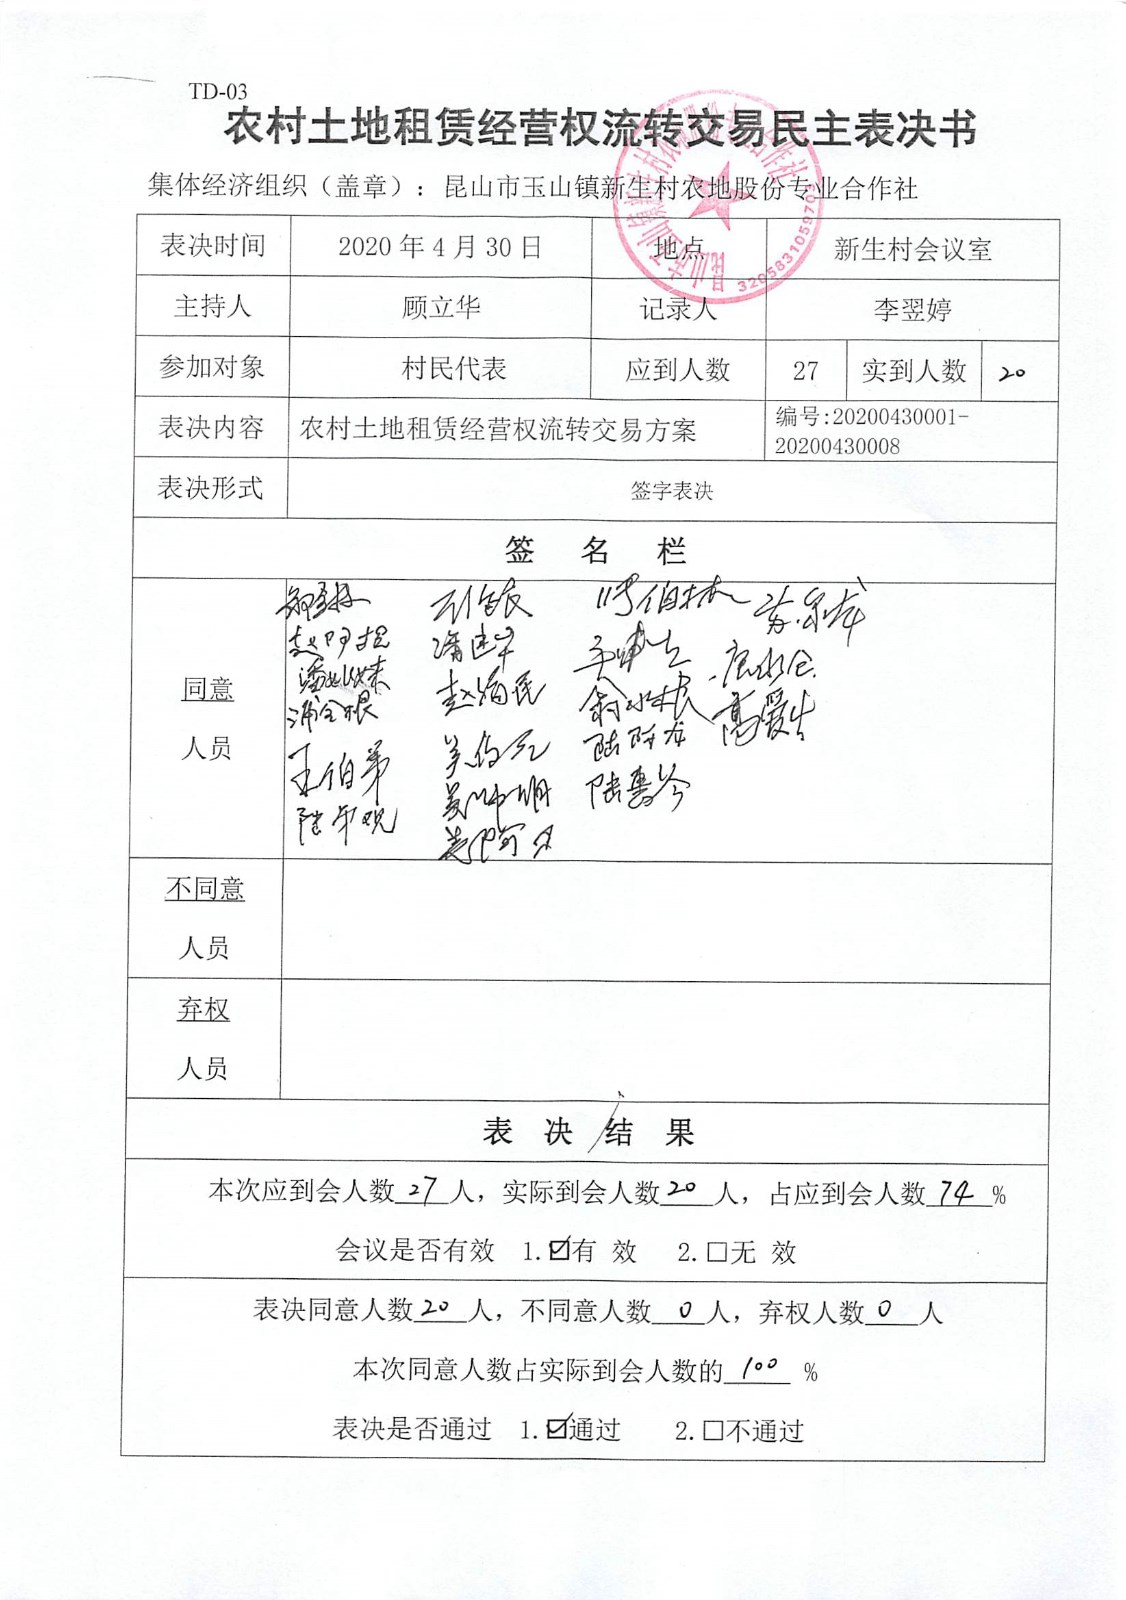 TD-03
农村土地租赁经营权流转交易民主表决书
集体经济组织（盖章）：昆山市玉山镇新生村农地股份专业合作社
表决时间 2020 年 4 月 30 日 地点 新生村会议室
主持人 顾立华 记录人 李翌婷
参加对象 村民代表 应到人数 27 实到人数 20
表决内容 农村土地租赁经营权流转交易方案 编号:20200430001-
20200430008
表决形式 签字表决
签 名 栏
同意
人员
潘建华
翁水根
高爱生
王伯弟
陆惠芬
不同意
人员
弃权
人员
表 决 结 果
本次应到会人数 27 人，实际到会人数 20 人，占应到会人数 74 %
会议是否有效 1.☑有 效 2.□无 效
表决同意人数 20 人，不同意人数 0 人，弃权人数 0 人
本次同意人数占实际到会人数的 100 %
表决是否通过 1.☑通过 2.□不通过
320583105970